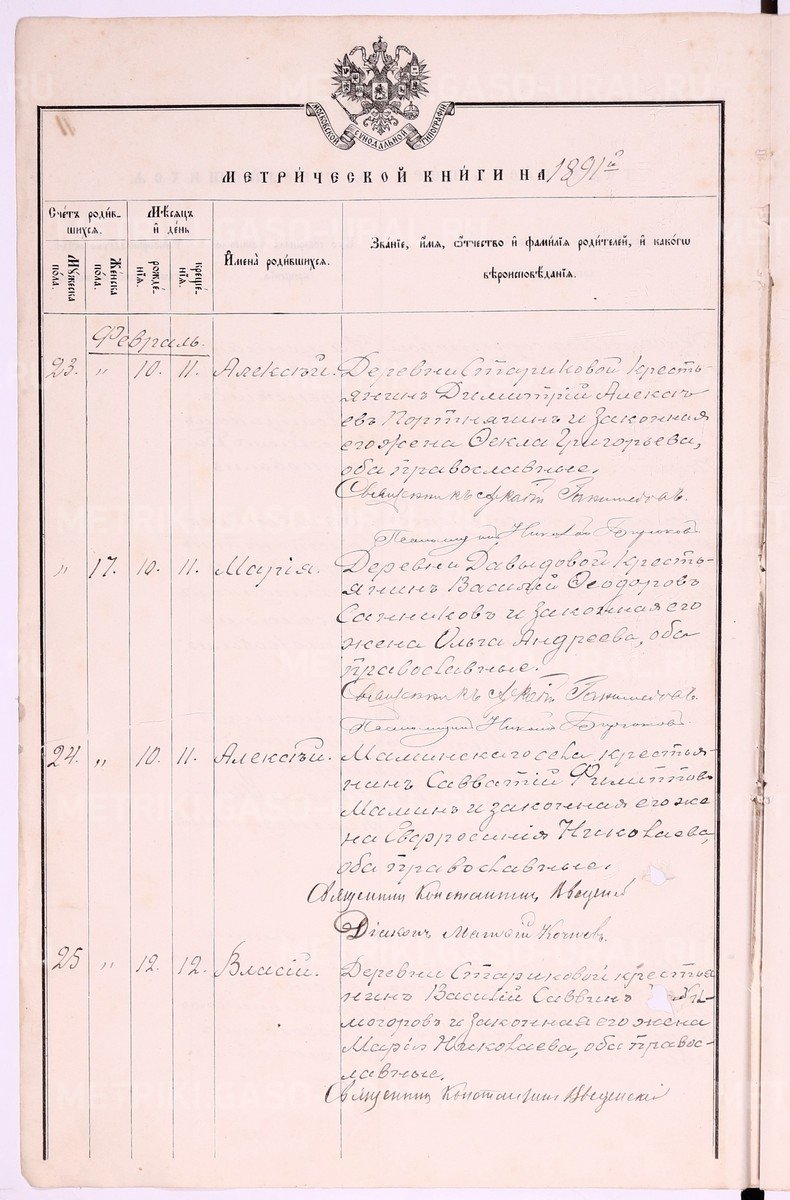 МОСКОВСКОЙ СѴНОДАЛЬНОЙ ТИПОГРАФІИ
МЕТРИ́ЧЕСКОЙ КНИ́ГИ НА 1891й
Сче́тъ роди́в-
шихся.
Мѣ́сяцъ
и҆ де́нь
Мꙋ́жеска по́ла.
Же́нска по́ла.
рожде́-
нїѧ.
креще́-
нїѧ.
И҆мена̀ роди́вшихся.
Зва́нїе, и҆́мѧ, ѻ҆́тчество и҆ фами́лїѧ роди́телей, и҆ како́гѡ
вѣроисповѣ́данїѧ.
Февраль.
23. " 10. 11. Алексѣй. Деревни Стариковой кресть-
янинъ Димитрій Алексѣ-
евъ Портнягинъ и законная
его жена Ѳекла Григорьева,
оба православные.
Священникъ
Псаломщикъ Николай
" 17. 10. 11. Марія. Деревни Давыдовой кресть-
янинъ Василій Ѳеодоровъ
Санниковъ и законная его
жена Ольга Андреева, оба
православные.
Священникъ
Псаломщикъ Николай
24. " 10. 11. Алексѣй. Маминскаго села крестья-
нинъ Савватій Филипповъ
Маминъ и законная его же
на Евфросинія Николаева,
оба православные.
Священникъ Константинъ Введенскій
Діаконъ Матвѣй Кочневъ.
25 " 12. 12. Власій. Деревни Стариковой крестья
нинъ Василій Саввинъ
могоровъ и законная его жена
Марія Николаева, оба право-
славные.
Священникъ Константинъ Введенскій